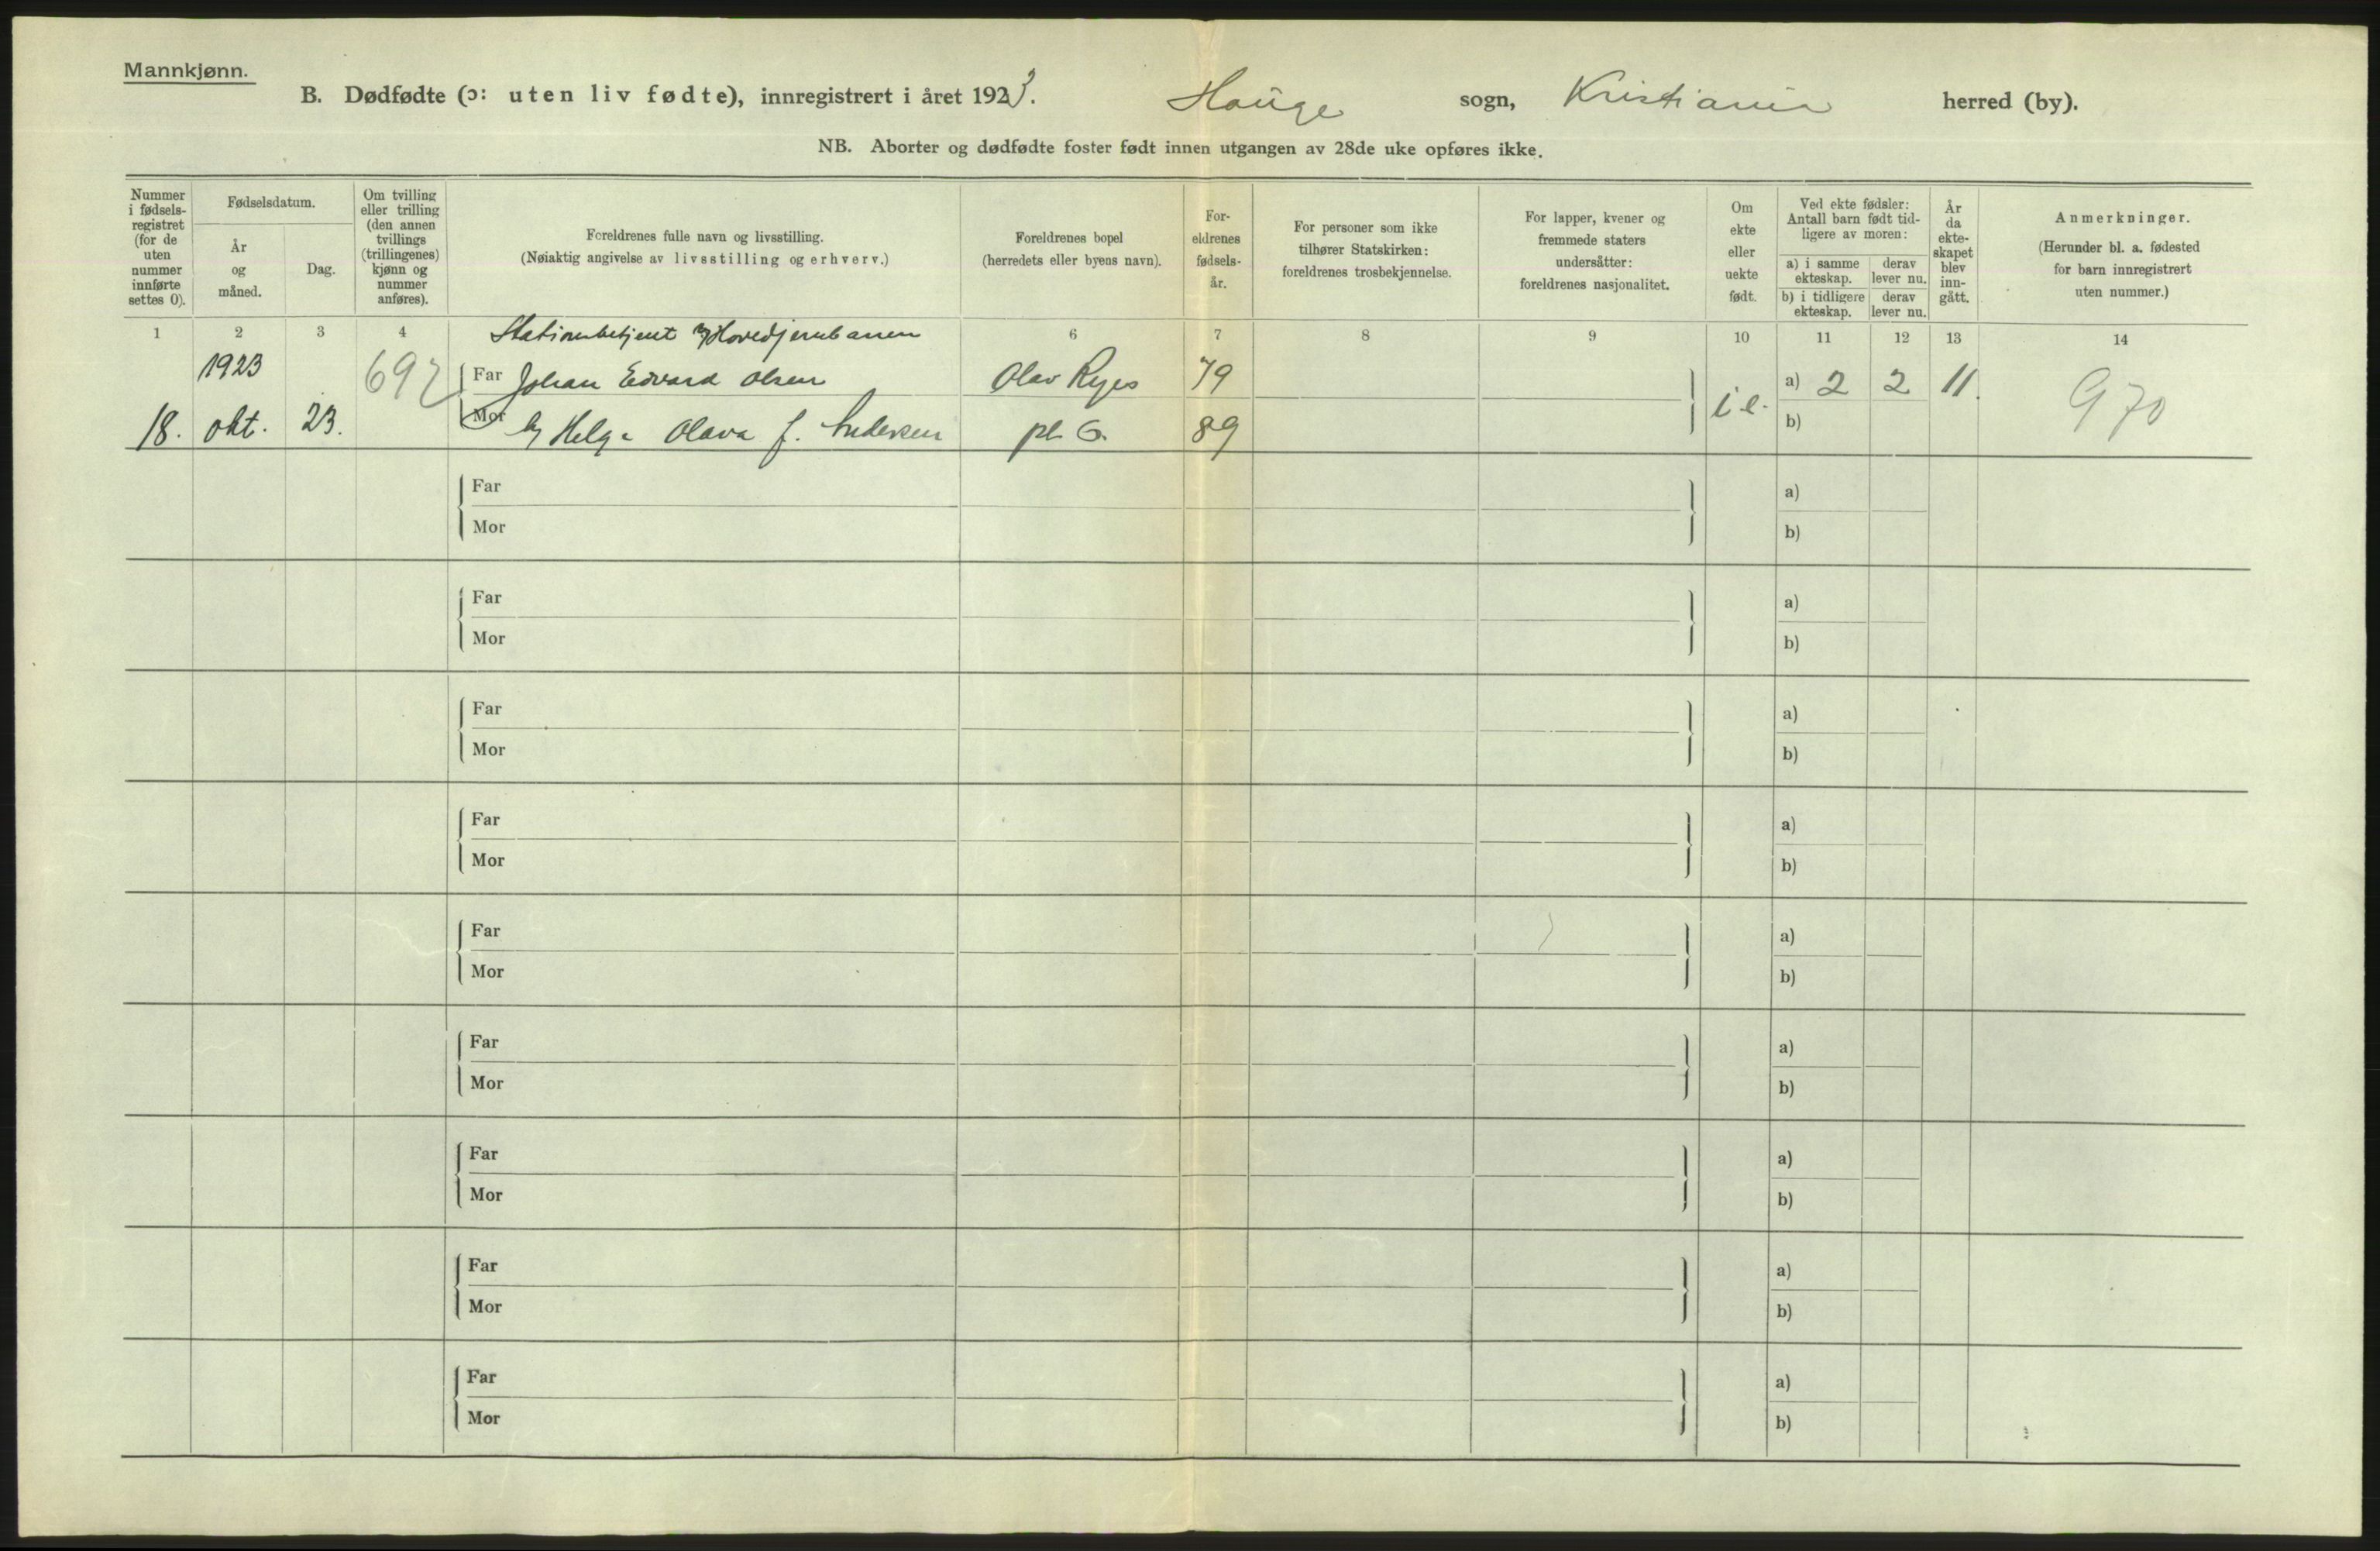 Mannkjønn.
B. Dødfødte (ɔ: uten liv fødte), innregistrert i året 1923. Hauge sogn, Kristiania herred (by).
NB. Aborter og dødfødte foster født innen utgangen av 28de uke opføres ikke.
Nummer i fødsels-registret (for de uten nummer innførte settes 0).
Fødselsdatum.
År og måned.
Dag.
Om tvilling eller trilling (den annen tvillings (trillingenes) kjønn og nummer anføres).
Foreldrenes fulle navn og livsstilling.
(Nøiaktig angivelse av livsstilling og erhverv.)
Foreldrenes bopel
(herredets eller byens navn).
For-eldrenes fødsels-år.
For personer som ikke tilhører Statskirken: foreldrenes trosbekjennelse.
For lapper, kvener og fremmede staters undersåtter: foreldrenes nasjonalitet.
Om ekte eller uekte født.
Ved ekte fødsler: Antall barn født tid-ligere av moren:
a) i samme ekteskap.
derav lever nu.
b) i tidligere ekteskap.
derav lever nu.
År da ekte-skapet blev inn-gått.
Anmerkninger.
(Herunder bl. a. fødested for barn innregistrert uten nummer.)
1 2 3 4 6 7 8 9 10 11 12 13 14
Stationsbetjent v/Hovedjernbanen
1923 697 Far Johan Edvard Olsen Olav Ryes 79 i e. a) 2 2 11. 970
18. okt. 23. Mor Helga Olava f. Andersen pl. 6. 89 b)
Far a)
Mor b)
Far a)
Mor b)
Far a)
Mor b)
Far a)
Mor b)
Far a)
Mor b)
Far a)
Mor b)
Far a)
Mor b)
Far a)
Mor b)
Far a)
Mor b)